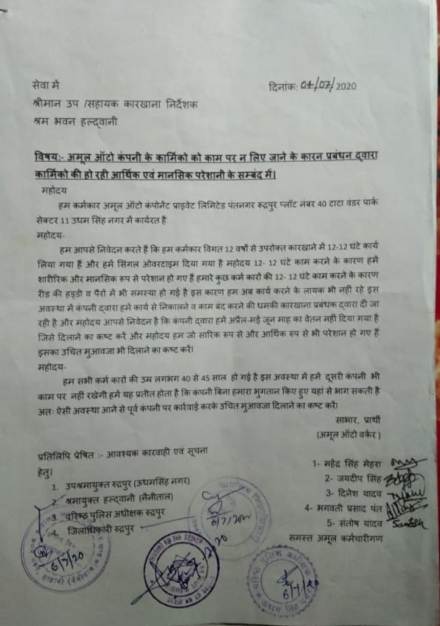 सेवा में
दिनांक: 04/07/2020
श्रीमान उप /सहायक कारखाना निर्देशक
श्रम भवन हल्द्वानी
विषय:- अमूल ऑटो कंपनी के कार्मिको को काम पर न लिए जाने के कारन प्रबंधन द्वारा
कार्मिको की हो रही आर्थिक एवं मानसिक परेशानी के सम्बंद में।
महोदय
हम कर्मकार अमूल ऑटो कंपोनेंट प्राइवेट लिमिटेड पंतनगर रूद्रपुर प्लॉट नंबर 40 टाटा वडर पार्क
सेक्टर 11 उधम सिंह नगर में कार्यरत है
महोदय-
हम आपसे निवेदन करते हैं कि हम कर्मकार विगत 12 वर्षों से उपरोक्त कारखाने में 12-12 घंटे कार्य
लिया गया हैं और हमें सिंगल ओवरटाइम दिया गया है महोदय 12- 12 घंटे काम करने के कारण हमे
शारीरिक और मानसिक रूप से परेशान हो गए हैं हमारे कुछ कर्म कारों की 12- 12 घंटे काम करने के कारण
रीड की हड्डी व पैरों में भी समस्या हो गई है इस कारण हम अब कार्य करने के लायक भी नहीं रहे इस
अवस्था में कंपनी द्वारा हमे कार्य से निकालने व काम बंद करने की धमकी कारखाना प्रबंधक द्वारा दी जा
रही है और महोदय आपसे निवेदन है कि कंपनी द्वारा हमें अप्रैल-मई जून माह का वेतन नहीं दिया गया है
जिसे दिलाने का कष्ट करें और महोदय हम जो सारिक रूप से और आर्थिक रूप से भी परेशान हो गए हैं
इसका उचित मुआवजा भी दिलाने का कष्ट करें।
महोदय-
हम सभी कर्म कारों की उम्र लगभग 40 से 45 साल हो गई है इस अवस्था में हमे दूसरी कंपनी भी
काम पर नहीं रखेगी हमें यह प्रतीत होता है कि कंपनी बिना हमारा भुगतान किए हुए यहां से भाग सकती है
अतः ऐसी अवस्था आने से पूर्व कंपनी पर कार्रवाई करके उचित मुआवजा दिलाने का कष्ट करें।
साभार, प्रार्थी
(अमूल ऑटो वर्कर )
प्रतिलिपि प्रेषित :- आवश्यक कारवाही एवं सूचना
हेतु।
1- महेंद्र सिंह मेहरा
1. उपश्रमायुक्त रुद्रपुर (उधमसिंह नगर)
2- जयदीप सिंह
2. श्रमायुक्त हल्द्वानी (नैनीताल)
3- दिनेश यादव
3. वरिष्ठ पुलिस अधीक्षक रुद्रपुर
4- भगवती प्रसाद पंत
4. जिलाधिकारी रुद्रपुर
5- संतोष यादव
Santosh
समस्त अमूल कर्मचारीगण
6/7/20
6/7/20
6/7/20